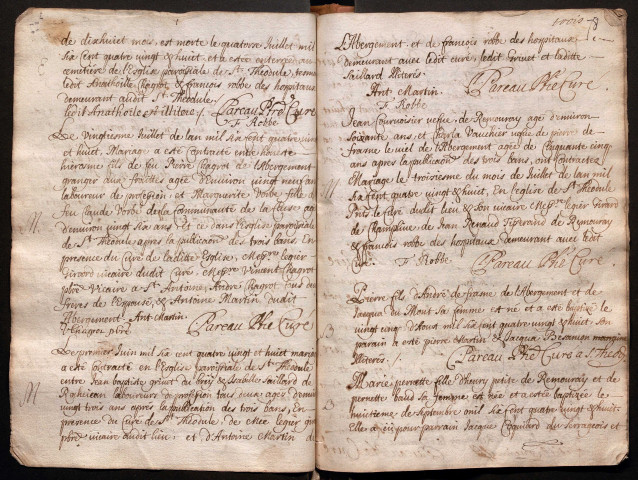 de dixhuict mois, est morte le quatorze Juillet mil
six cent quatre vingt & huict, et a este enterrée au
cemetiere de l'Eglise parrochiale de St. Theodule, temoins
ledit Anathoille Chagrot & francois robbe des hospitaux
demeurant audit St. Theodule.
ledit Anathoile est illitere /. Pareau Pbre Cure
F. Robbe
Le vingtiesme Juillet de lan mil six cent quatre vingt
et huict, Mariage a esté contracté entre honeste
hierosme fils de feu Pierre Chagrot de l'Abergement
granger aux fraittes agé d'environ vingt neuf ans
laboureur de profession, et Marguerite Vorbe fille de
feu Claude Vorbe de la Communauté de
d'environ vingt six ans, et ce dans l'Eglise parrochiale
de St. Theodule apres la publication des trois bans, En
presence du Cure de ladite Eglise, Messre legier
Girard vicaire dudit Cure, Messre Vincent Chagrot
pbre Vicaire a St. Antoine, Andre Chagrot tous deux
freres de l'Epousé, & Antoine Martin dudit
Abergement. Ant Martin
Chagrot pbre Pareau Pbre Cure
M
Le premier Juin mil six cent quatre vingt et huict mariage
a esté contracté en l'Eglise parrochiale de St. Theodule
entre Jean baptiste grivet du brey & Isabelle Saillard de
laboureurs de profession tous deux agés d'environ
vingt trois ans apres la publication des trois bans, En
presence du Cure de St. Theodule, de Mre legier
pbre vicaire dudit lieu, et d'Antoine Martin de
M
trois 8
L'Abergement, et de francois robbe des hospitaux
demeurant avec ledit cure, ledit Grivet et ladite
Saillard illiteres.
Ant Martin Pareau Pbre Cure
F Robbe
Jean Cournoisier vefve de Remouray agé d'environ
soixante ans, et Vauchier vefve de pierre de
frasne le viel de l'Abergement agée de Cinquante cinq
ans apres la publication des trois bans, ont contracté
Mariage le troisiesme du mois de Juillet de lan mil
six cent quatre vingt & huict, En l'eglise de St. Theodule
Pnts le Curé dudit lieu & son vicaire Messre legier Girard
de Champlive, de Jean Renaud de Remouray
& francois robbe des hospitaux demeurant avec ledit
Cure. F Robbe. Pareau Pbre Cure
M
Pierre fils d'André de frasne de l'Abergement et de
Jacqua du Mont sa femme est né et a esté baptisé le
vingt cinq d'Aoust mil six cent quatre vingt & huict, son
parain a esté pierre Martin & Jacqua Besançon marraine
illiteres /. Pareau Pbre Cure a St Theodule
B
Marie pernette fille d'henry petite de Remouray et de
pernette baud sa femme est née et a esté baptizee le
huictieme de septembre mil six cent quatre vingt & huict.
Elle a eü pour parrain Jacque Coquilard du Sarrageois et
B